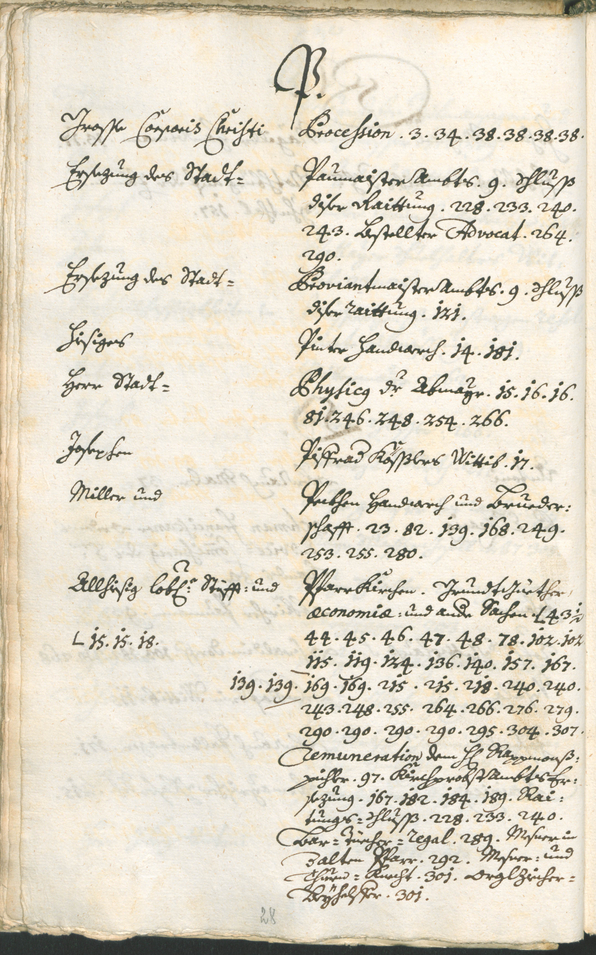 P.
Grosse Corporis Christi Procession. 3. 34. 38. 38. 38. 38.
Ersezung des Stadt= Paumaister Ambts. 9. Schluß
diser Raittung. 228. 233. 240.
243. Bestellter Advocat. 264.
290.
Ersezung des Stadt= Proviantmaister Ambts. 9. Schluß
diser raittung. 121.
Hiesiges Pinter Handwerch. 14. 181.
Herr Stadt= Physicg dr 15. 16. 16.
81. 246. 248. 254. 266.
Josephen Wittib. 17.
Miller und Pekhen Handwerch und Brueder:
schafft. 23. 82. 139. 168. 249.
253. 255. 280.
Allhiesig lobl: Stüfft= und PfarrKirchen.
œconomiæ: und ande Sachen
L 15. 15. 18. 44. 45. 46. 47. 48. 78. 102. 102
115. 119. 124. 136. 140. 157. 167.
139. 139. 169. 169. 215. 215. 218. 240. 240.
243. 248. 255. 264. 266. 276. 279.
290. 290. 290. 290. 295. 304. 307.
Remuneration dem H:
97. KirchprobstAmbts Er=
sezung. 167. 182. 184. 189. Rai:
tungs=schluß. 228. 233. 240.
289. Mesner in
alten Pfarr. 292. Mesner= und
Knecht. 301. Orglzieher=
301.
28